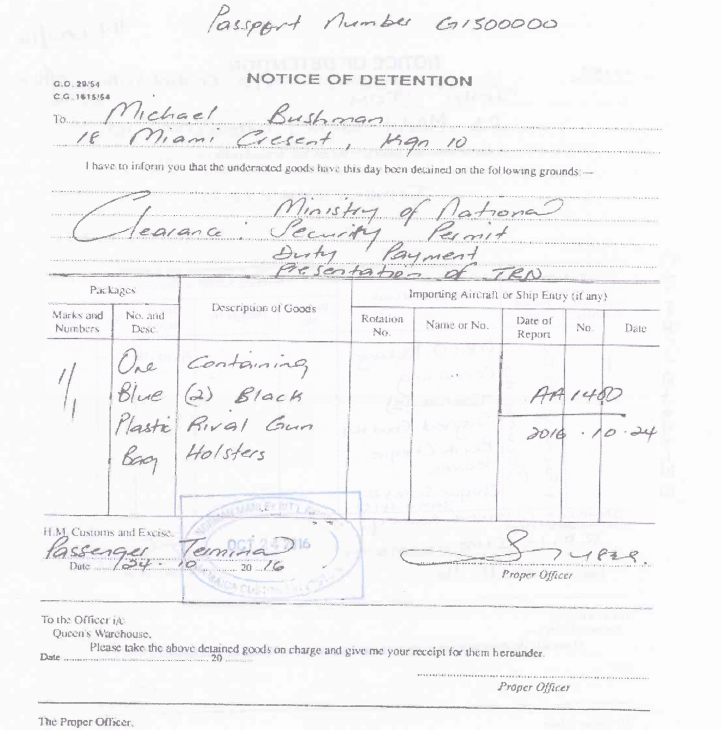 Passport Number G1500000
NOTICE OF DETENTION
G.O. 29/54
C.G. 1615/54
To Michael Bushman
18 Miami Cresent, Kgn 10
I have to inform you that the undernoted goods have this day been detained on the following grounds:—
Clearance: Ministry of National
Security Permit
Duty Payment
Presentation of TRN
Packages
Description of Goods
Importing Aircraft or Ship Entry (if any)
Marks and Numbers
No. and Desc.
Rotation No.
Name or No.
Date of Report
No.
Date
1/1
One Containing
Blue (2) Black AA 1460
Plastic Rival Gun 2016.10.24
Bag Holsters
H.M. Customs and Excise.
Passenger Terminal
Date 24.10 2016
NORMAN MANLEY
OCT 24 2016
JAMAICA CUSTOMS
Proper Officer
To the Officer i/c
Queen's Warehouse,
Please take the above detained goods on charge and give me your receipt for them hereunder.
Date 20
Proper Officer
The Proper Officer.